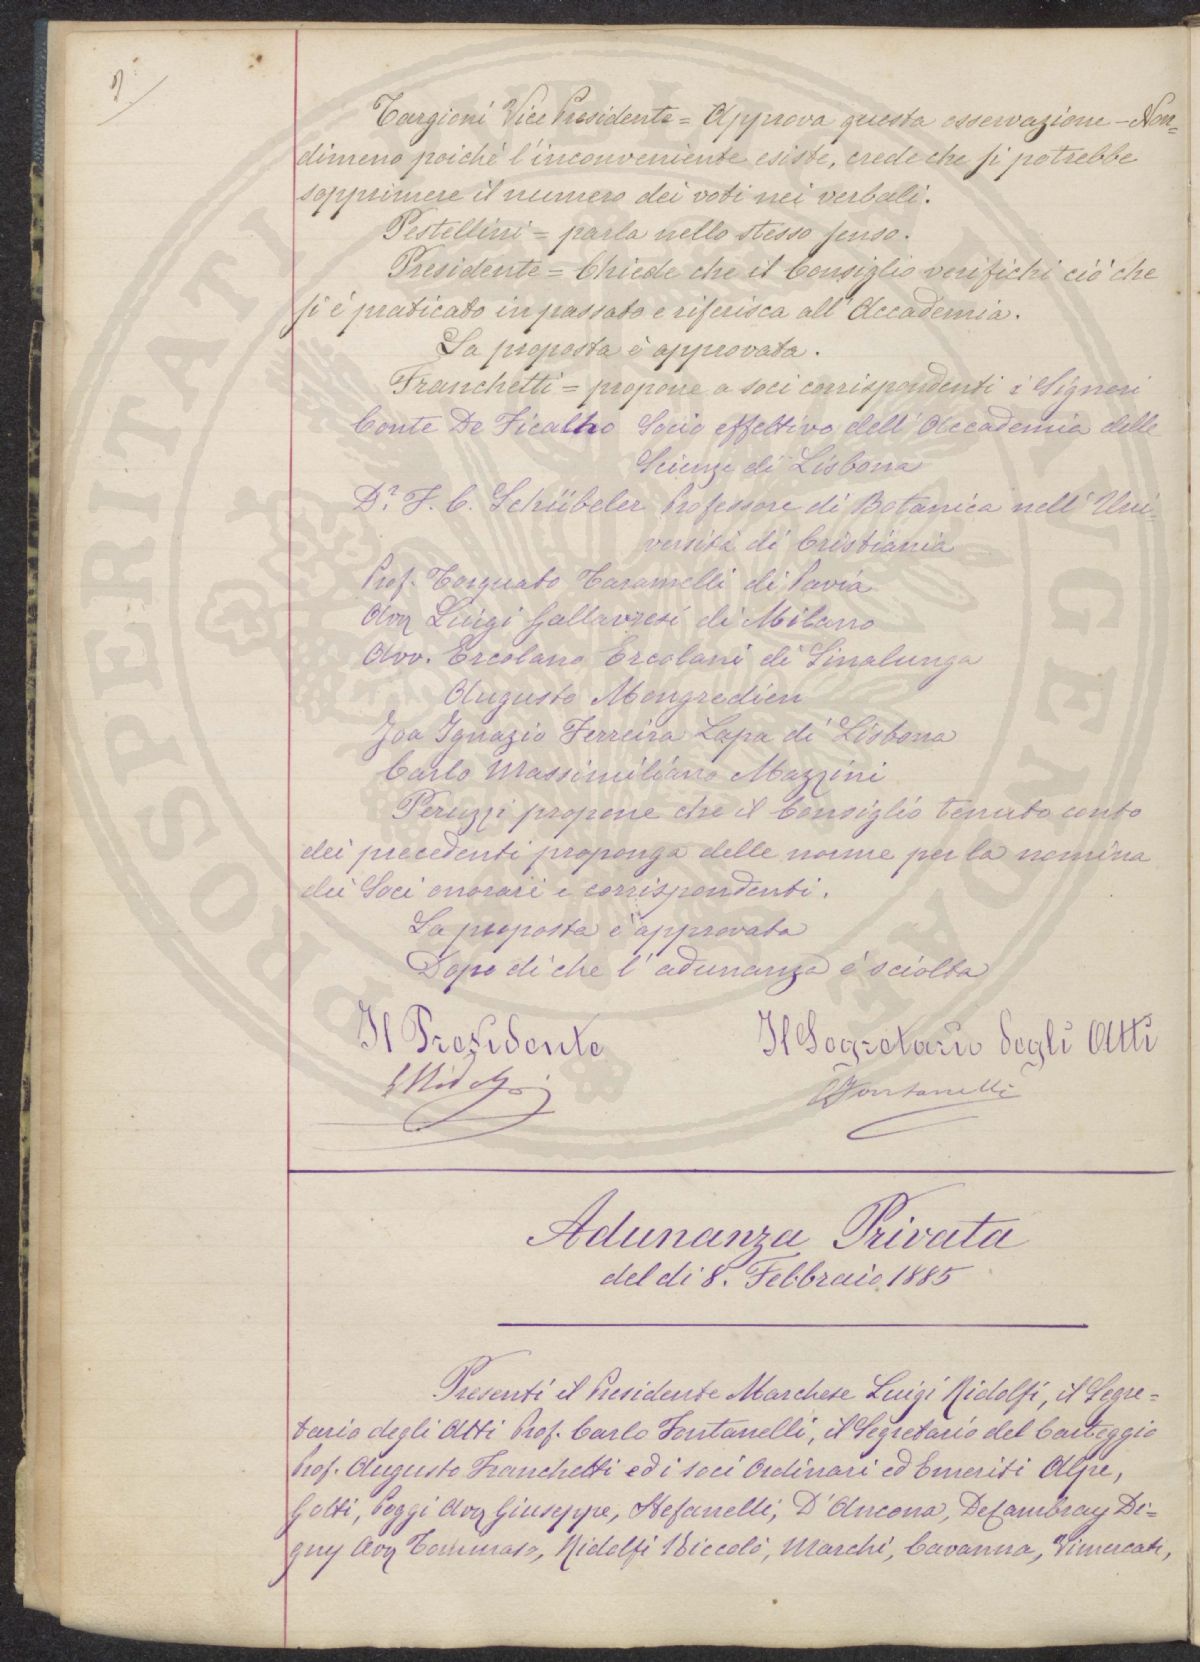 2
Targioni Vice Presidente = Approva questa osservazione - Non=
dimeno poiché l'inconveniente esiste, crede che si potrebbe
sopprimere il numero dei voti nei verbali.
Pestellini = parla nello stesso senso.
Presidente = Chiede che il Consiglio verifichi ciò che
si é praticato in passato e riferisca all'Accademia.
La proposta é approvata.
Franchetti = propone a soci corrispondenti i Signori
Conte De Ficalho Socio effettivo dell'Accademia delle
Scienze di Lisbona
Dr. F. C. Schübeler Professore di Botanica nell'Uni-
versità di Cristiania
Prof. Torquato Taramelli di Pavia
Avv Luigi Gallavresi di Milano
Avv. Ercolano Ercolani di Sinalunga
Augusto Mongredien
Joa Ignazio Ferreira Lapa di Lisbona
Carlo Massimiliano Mazzini
Peruzzi propone che il Consiglio tenuto conto
dei precedenti proponga delle norme per la nomina
dei Soci onorari e corrispondenti.
La proposta é approvata
Dopo di che l'adunanza é sciolta
Il Presidente Il Segretario degli Atti
LRidolfi Fontanelli
Adunanza Privata
del di 8. Febbraio 1885
Presenti il Presidente Marchese Luigi Ridolfi, il Segre=
tario degli Atti Prof. Carlo Fontanelli, il Segretario del Carteggio
Prof. Augusto Franchetti ed i soci Ordinari ed Emeriti Alpe,
Gotti, Poggi Avv Giuseppe, Stefanelli, D'Ancona, DeCambray Di=
gny Avv Tommaso, Ridolfi Niccolò, Marchi, Cavanna, Vimercati,
PROSPERITATI AUGENDAE